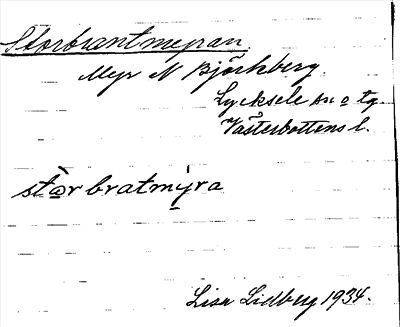 Storbrantmyran
Myr N Björkberg.
Lycksele sn o tg.
Västerbottens l.
stɷrbratmýra
Lisa Lidberg 1934.